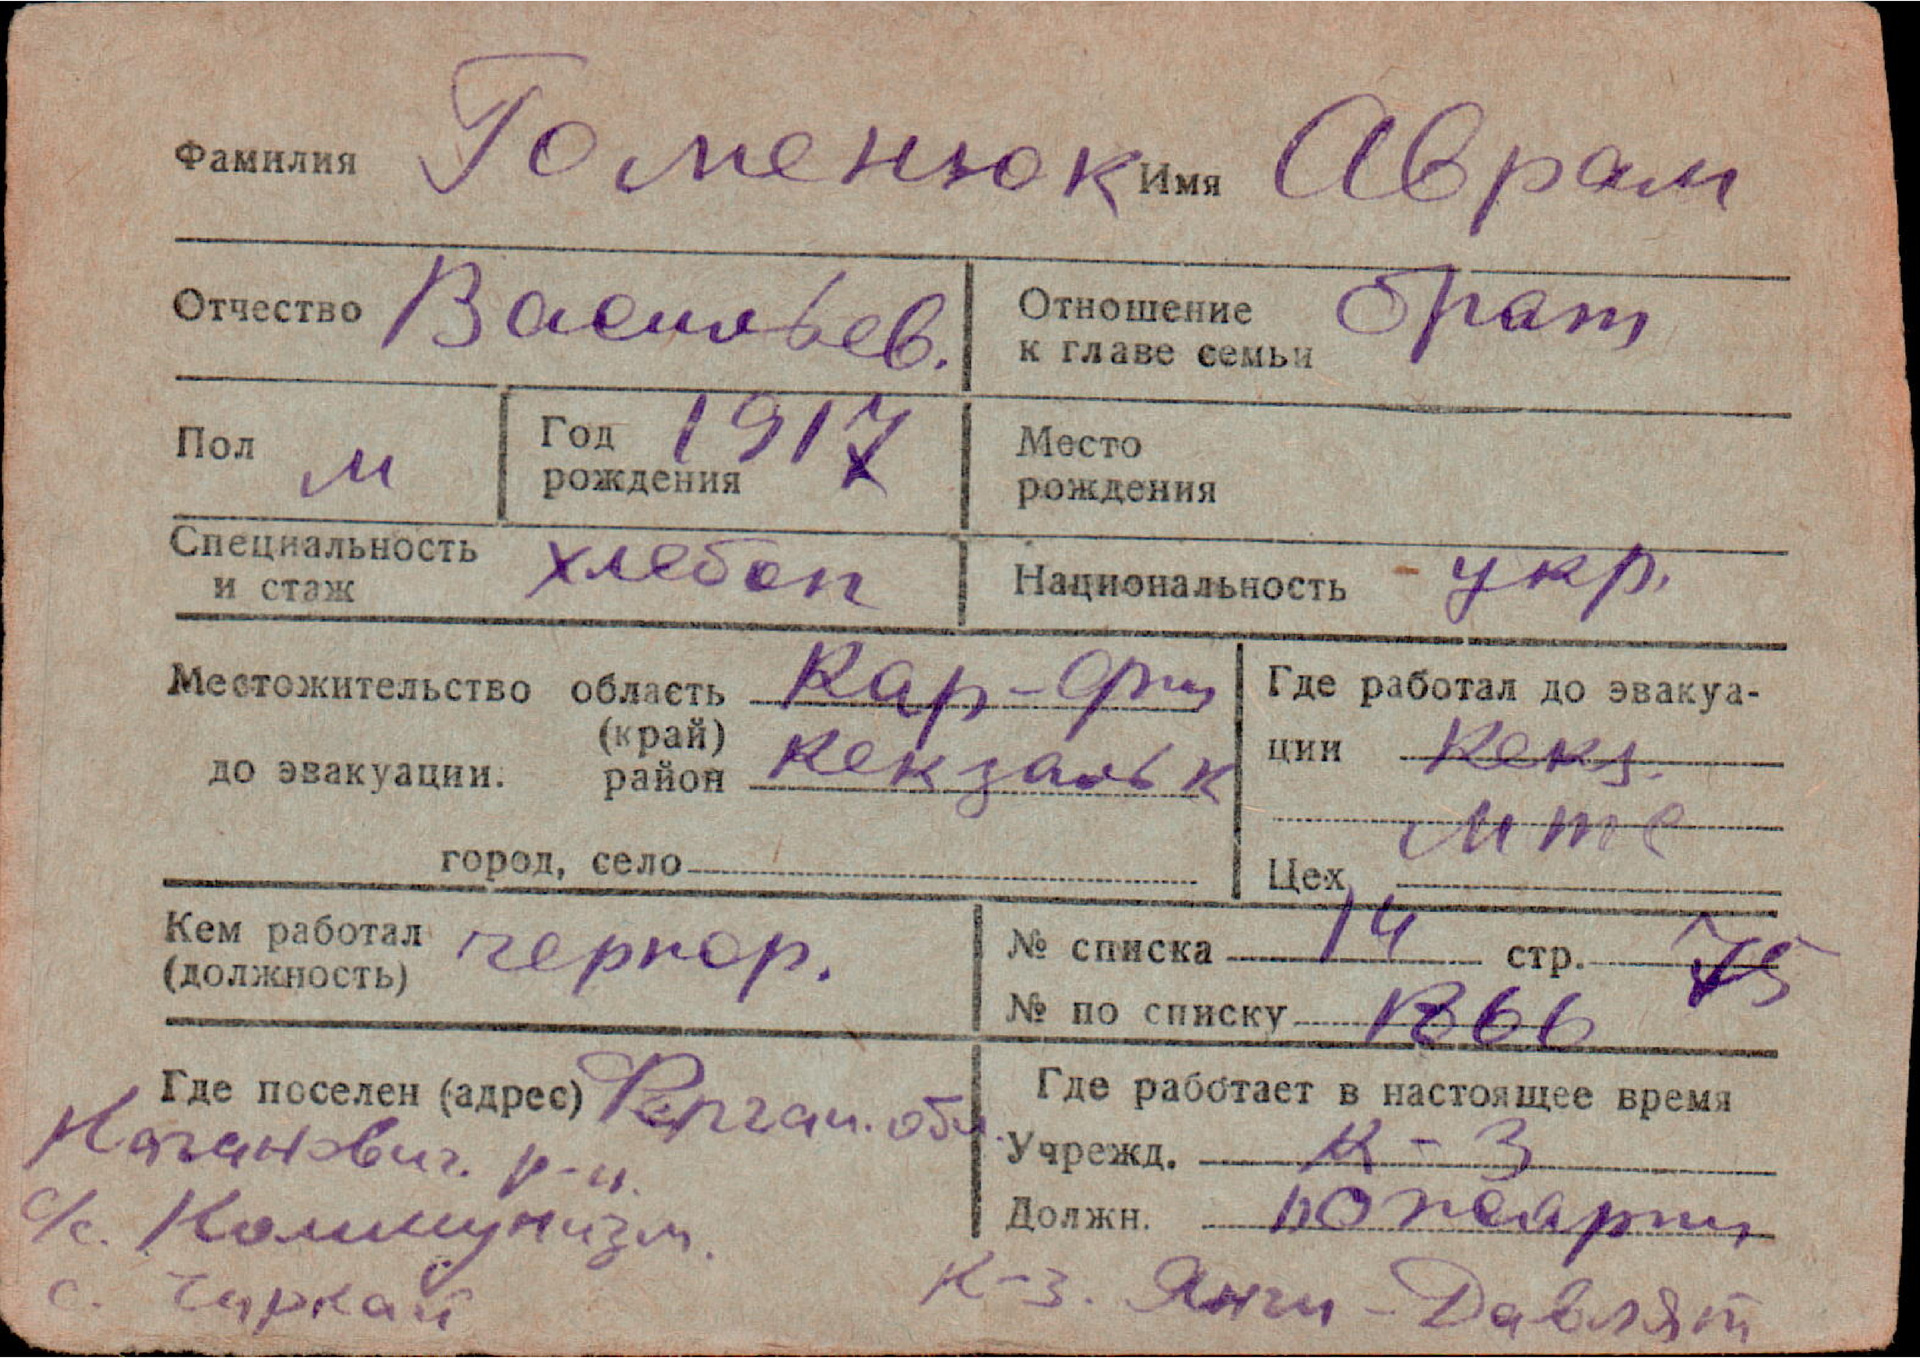 Фамилия Гоменюк Имя Аврам
Отчество Васильев. Отношение к главе семьи брат
Пол м Год рождения 1917 Место рождения
Специальность и стаж хлебоп Национальность укр.
Местожительство область (край) Кар-Фин Где работал до эвакуа-
до эвакуации. район Кекзальк ции Кекз.
мтс
город, село Цех
Кем работал (должность) чернор. № списка 14 стр. 75
№ по списку 1366
Где поселен (адрес) Ферган. обл. Где работает в настоящее время
Каганович. р-н. Учрежд. К-З
с/с. Коммунизм. Должн. пожарн
с. Чиркай к-з. Янги-Давлят